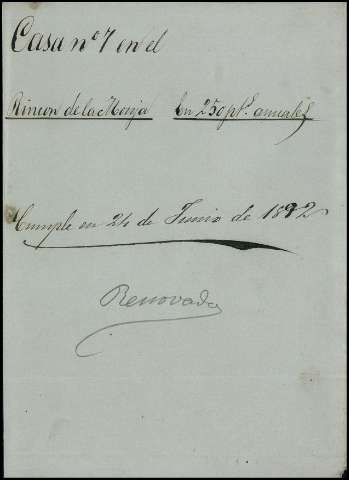 Casa nº 7 en el
Rincon de la Monja En 250 pts. anuales
Cumple en 24 de Junio de 1892
Renovada